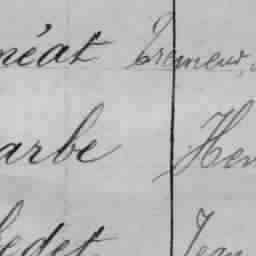 néat Tremeur,
arbe Hen
edet Jean